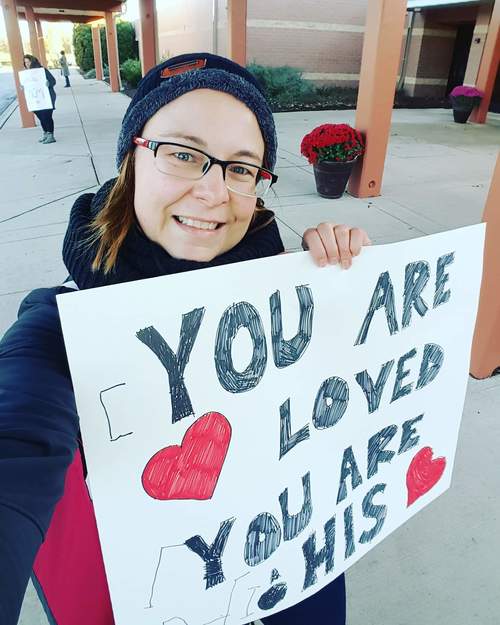 YOU ARE
LOVED
YOU ARE
HIS